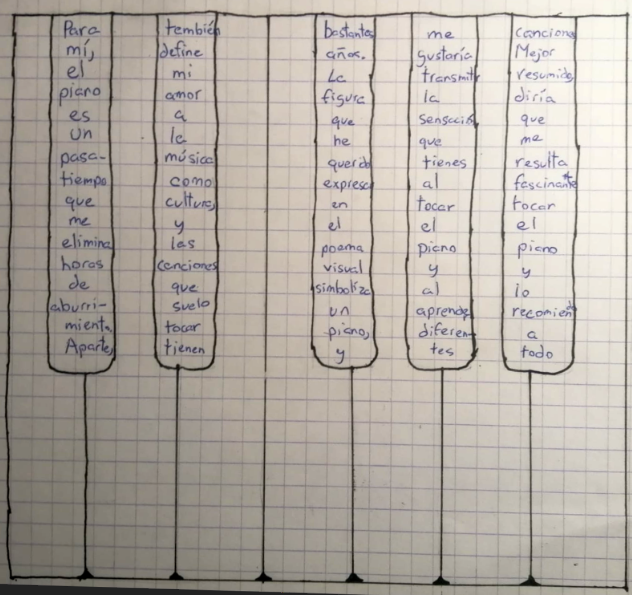 Para
mí,
el
piano
es
un
pasa-
tiempo
que
me
elimina
horas
de
aburri-
miento.
Aparte,
también
define
mi
amor
a
la
música
como
cultura,
y
las
canciones
que
suelo
tocar
tienen
bastantes
años.
La
figura
que
he
querido
expresar
en
el
poama
visual
simboliza
un
piano,
y
me
gustaría
transmitir
la
sensación
que
tienes
al
tocar
el
piano
y
al
aprender
diferen-
tes
canciones
Mejor
resumido,
diría
que
me
resulta
fascinante
tocar
el
piano
y
lo
recomiendo
a
todo